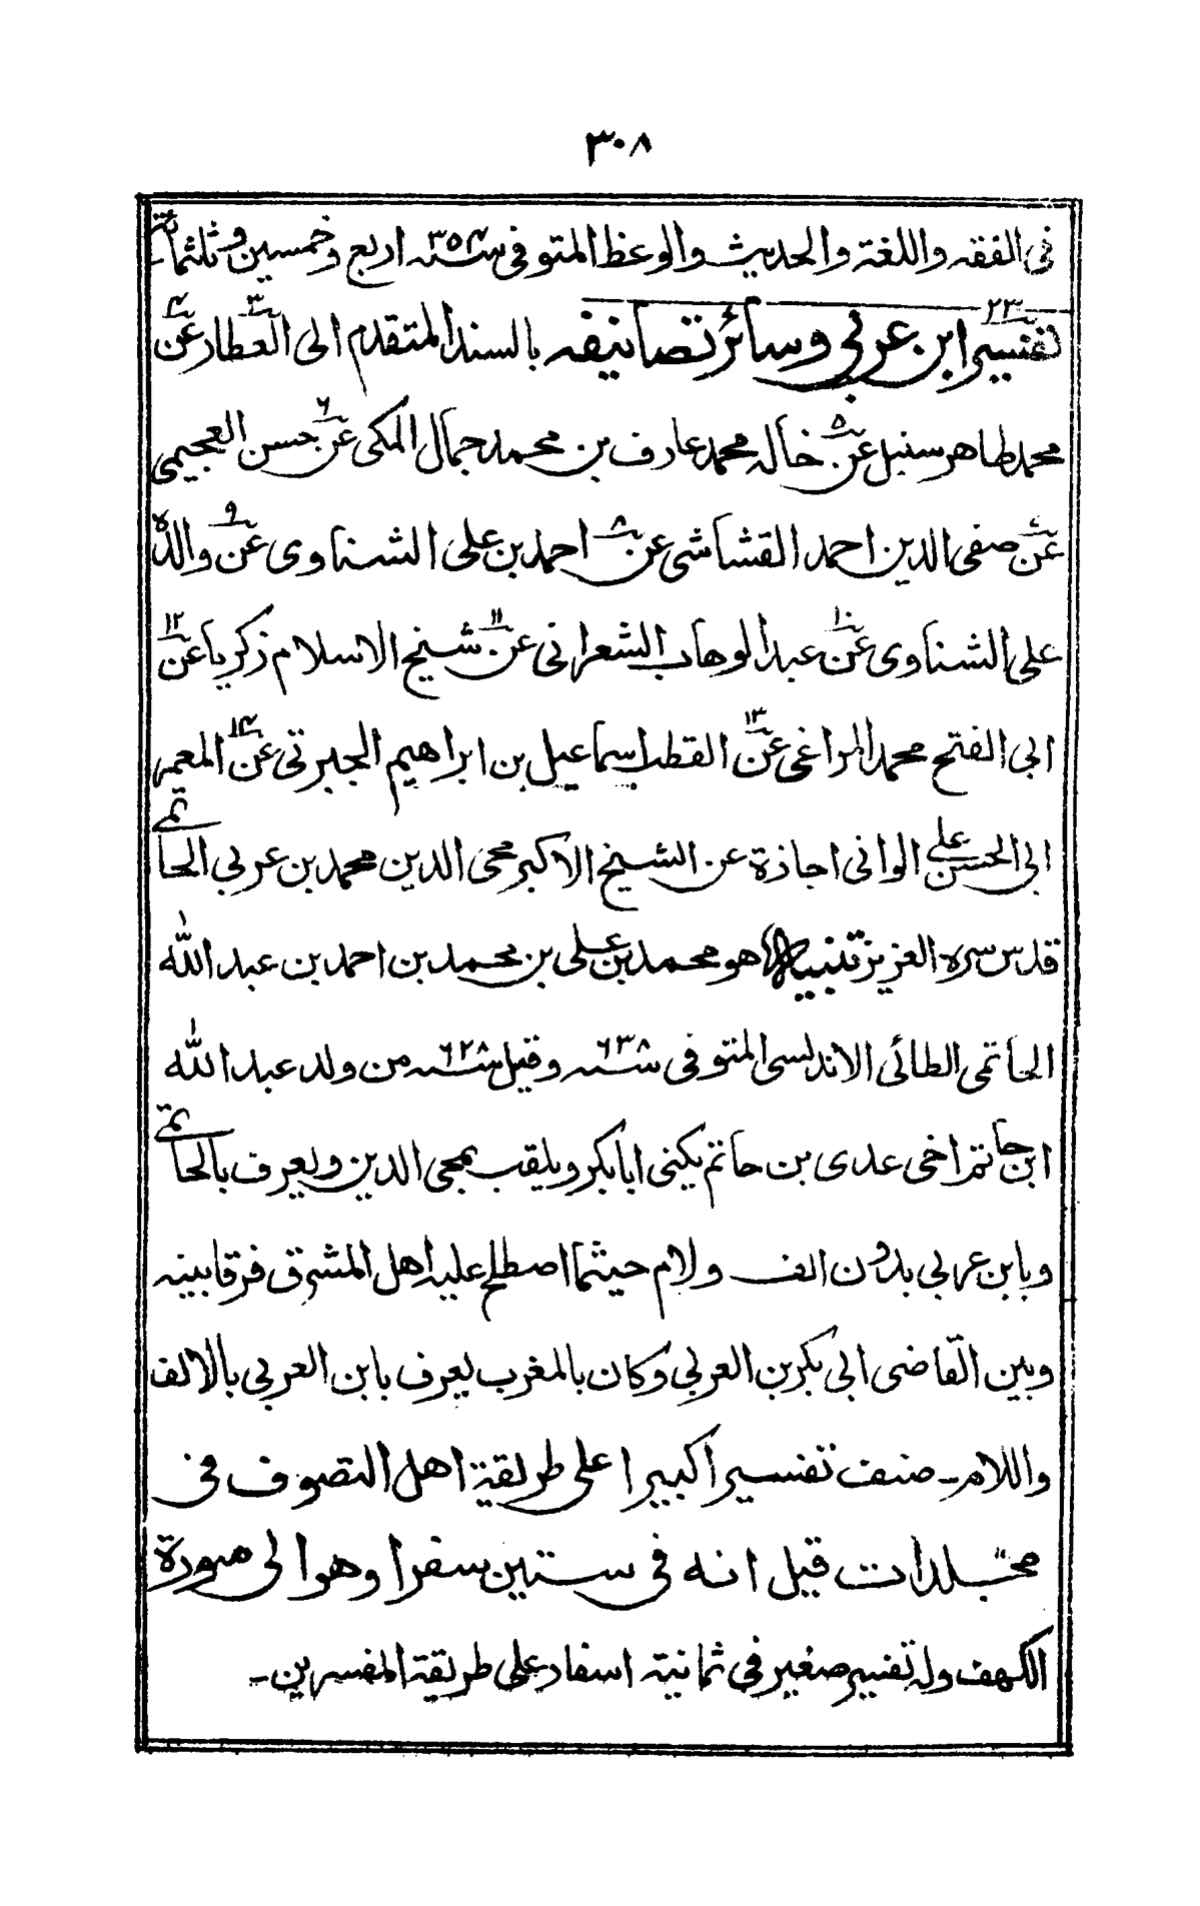 ٣٠٨
فى الفقه واللغة والحديث والوعظ المتوفى سنه ٣٥٤ اربع وخمسين وثلثمائة
٢٣ تفسير ابن عربي وسائر تصانيفه بالسند المتقدم الى العطار ٣ عن ٤
محمد طاهر سنبل عن ٥ خاله محمد عارف بن محمد جمال المكى عن ٦ حسن العجيمى
عن صفى الدين احمد القشاشى عن ٨ احمد بن على الشناوى عن ٩ والده
على الشناوى عن ١٠ عبد الوهاب الشعرانى عن ١١ شيخ الاسلام زكريا عن ١٢
ابى الفتح محمد المراغى عن ١٣ القطب اسماعيل بن ابراهيم الجبرتى عن ١٤ المعمر
ابى الحسن على الوانى اجازة عن الشيخ الاكبر محى الدين محمد بن عربي الحاتمى
قدس سره العزيز تنبيه هو محمد بن على بن محمد بن احمد بن عبد الله
الحاتمى الطائى الاندلسى المتوفى سنه ٦٣٨ وقيل سنه ٦٢٨ من ولد عبد الله
ابن حاتم اخى عدى بن حاتم يكنى ابا بكر ويلقب بمحى الدين ويعرف بالحاتمى
وبابن عربي بدون الف ولام حيثما اصطلح عليه اهل المشرق فرقا بينه
وبين القاضى ابى بكر بن العربي وكان بالمغرب يعرف بابن العربي بالالف
واللام۔ صنف تفسيرا كبيرا على طريقة اهل التصوف فى
مجلدات قيل انه فى ستين سفرا وهو الى سورة
الكهف وله تفسير صغير فى ثمانية اسفار على طريقة المفسرين۔